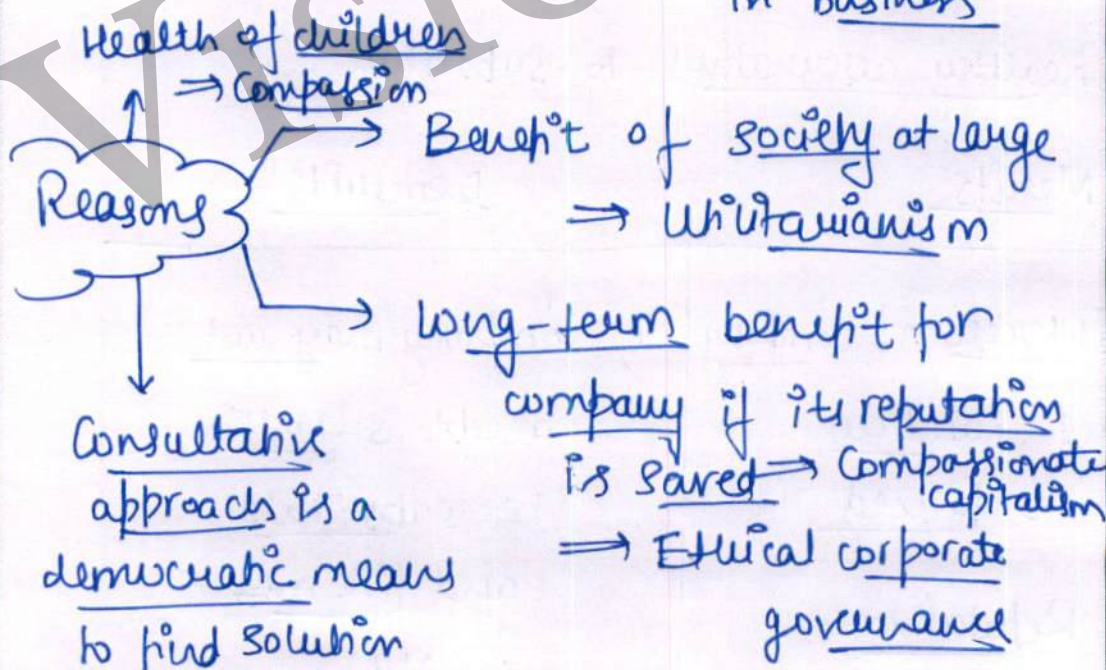 in Business
Health of children
⇒ Compassion
Reasons
Benefit of society at large
⇒ Utilitarianism
Long-term benefit for
company if its reputation
is saved ⇒ Compassionate
capitalism
⇒ Ethical corporate
governance
Consultative
approach is a
democratic means
to find solution